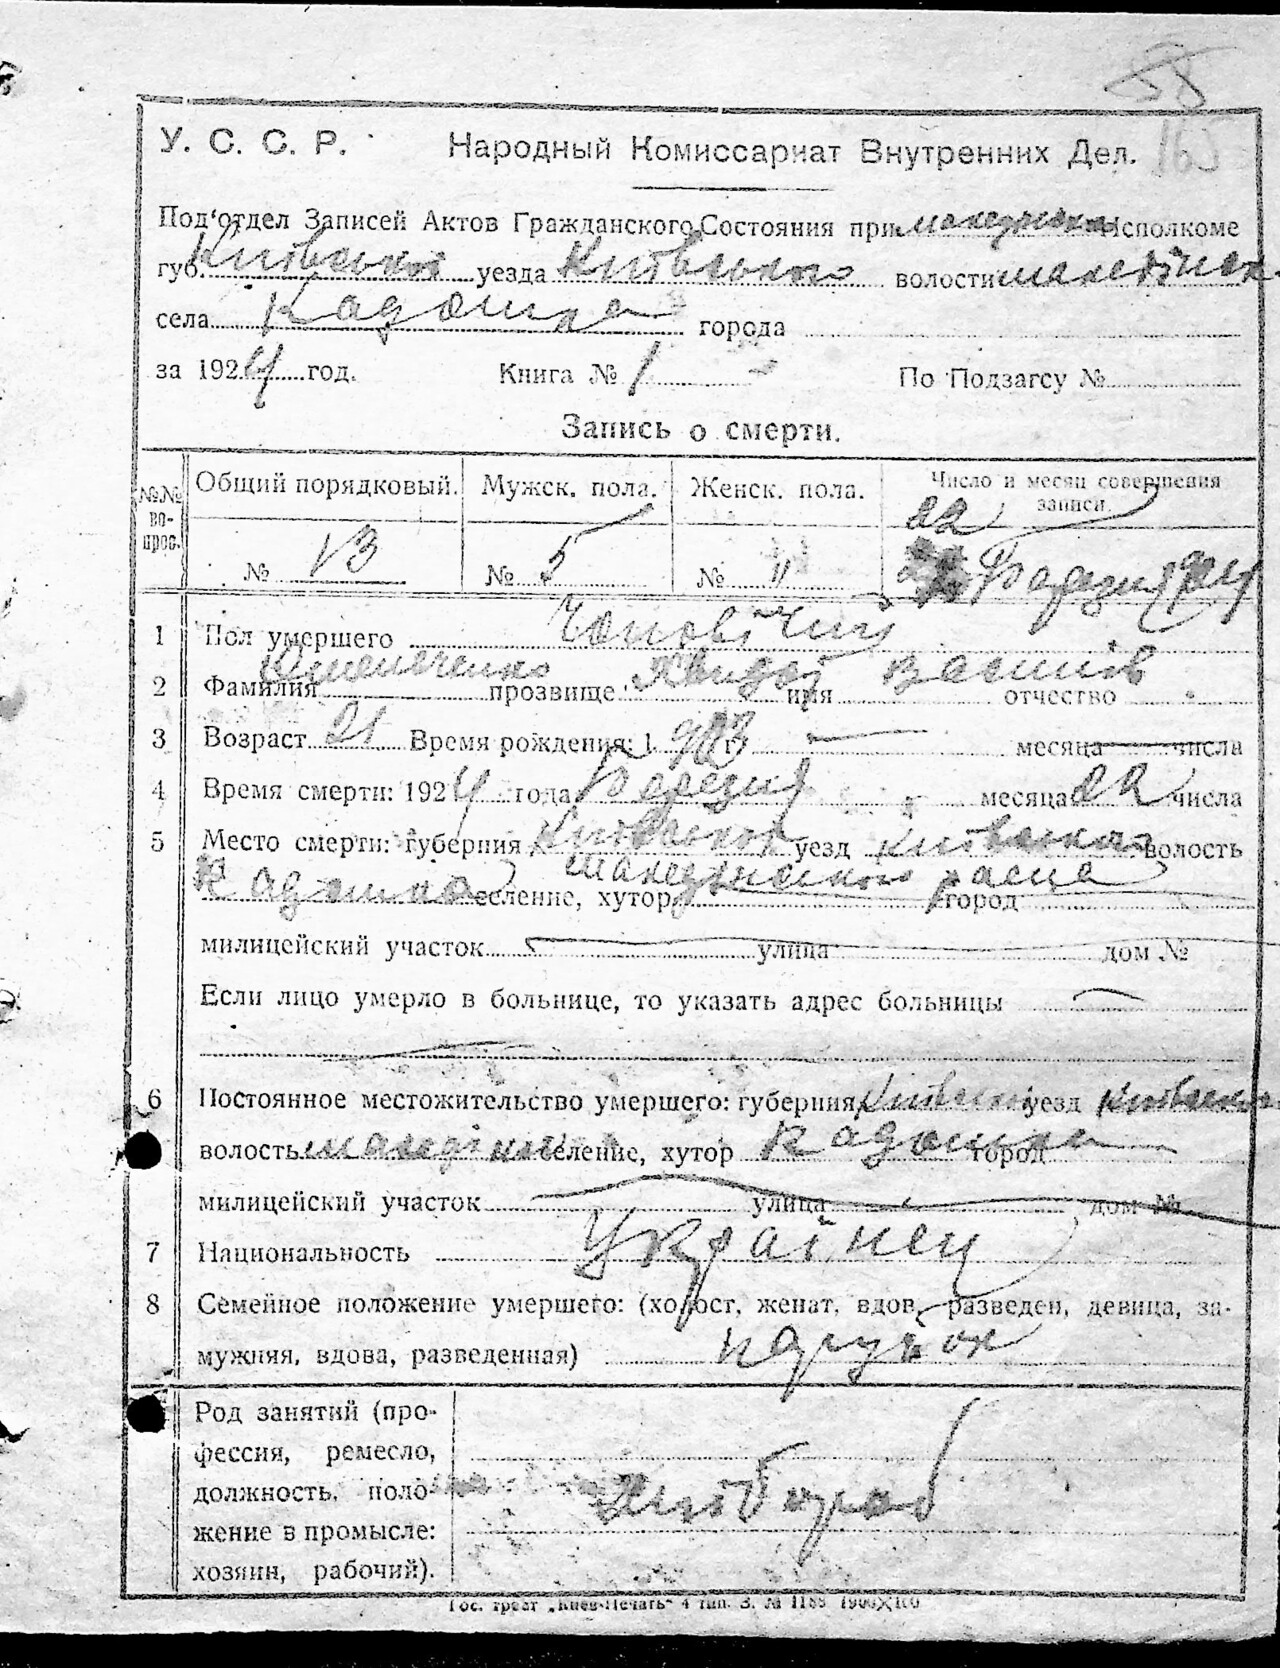 У. С. С. Р. Народный Комиссариат Внутренних Дел.
Под'отдел Записей Актов Гражданского Состояния при Исполкоме
губ. Київської уезда Київського волости
села Кадомка города
за 1924 год. Книга № 1 По Подзагсу №
Запись о смерти.
№№ во-прос. Общий порядковый. Мужск. пола. Женск. пола. Число и месяц совершения записи.
22
№ 13 № 5 № " Березня 924
1 Пол умершего Чоловічий
2 Фамилия прозвище имя отчество Василів
3 Возраст 21 Время рождения: 1 903 г. месяца числа
4 Время смерти: 1924 года Березня месяца 22 числа
5 Место смерти: губерния Київської уезд Київського волость
Кадомка селение, хутор город
милицейский участок улица дом №
Если лицо умерло в больнице, то указать адрес больницы
6 Постоянное местожительство умершего: губерния уезд Київського
волость селение, хутор Кадомка город
милицейский участок улица дом №
7 Национальность Українец
8 Семейное положение умершего: (холост, женат, вдов, разведен, девица, за-
мужняя, вдова, разведенная) парубок
Род занятий (про-
фессия, ремесло,
должность, поло-
жение в промысле: Хлібороб
хозяин, рабочий).
Гос. трест „Киев-Печать" 4 тип. З. № 1185 1900×100